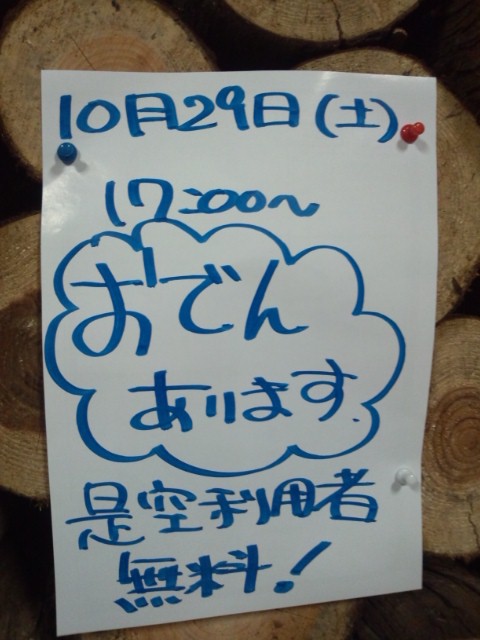 10月29日(土)
17:00~
おでん
あります.
是空利用者
無料!